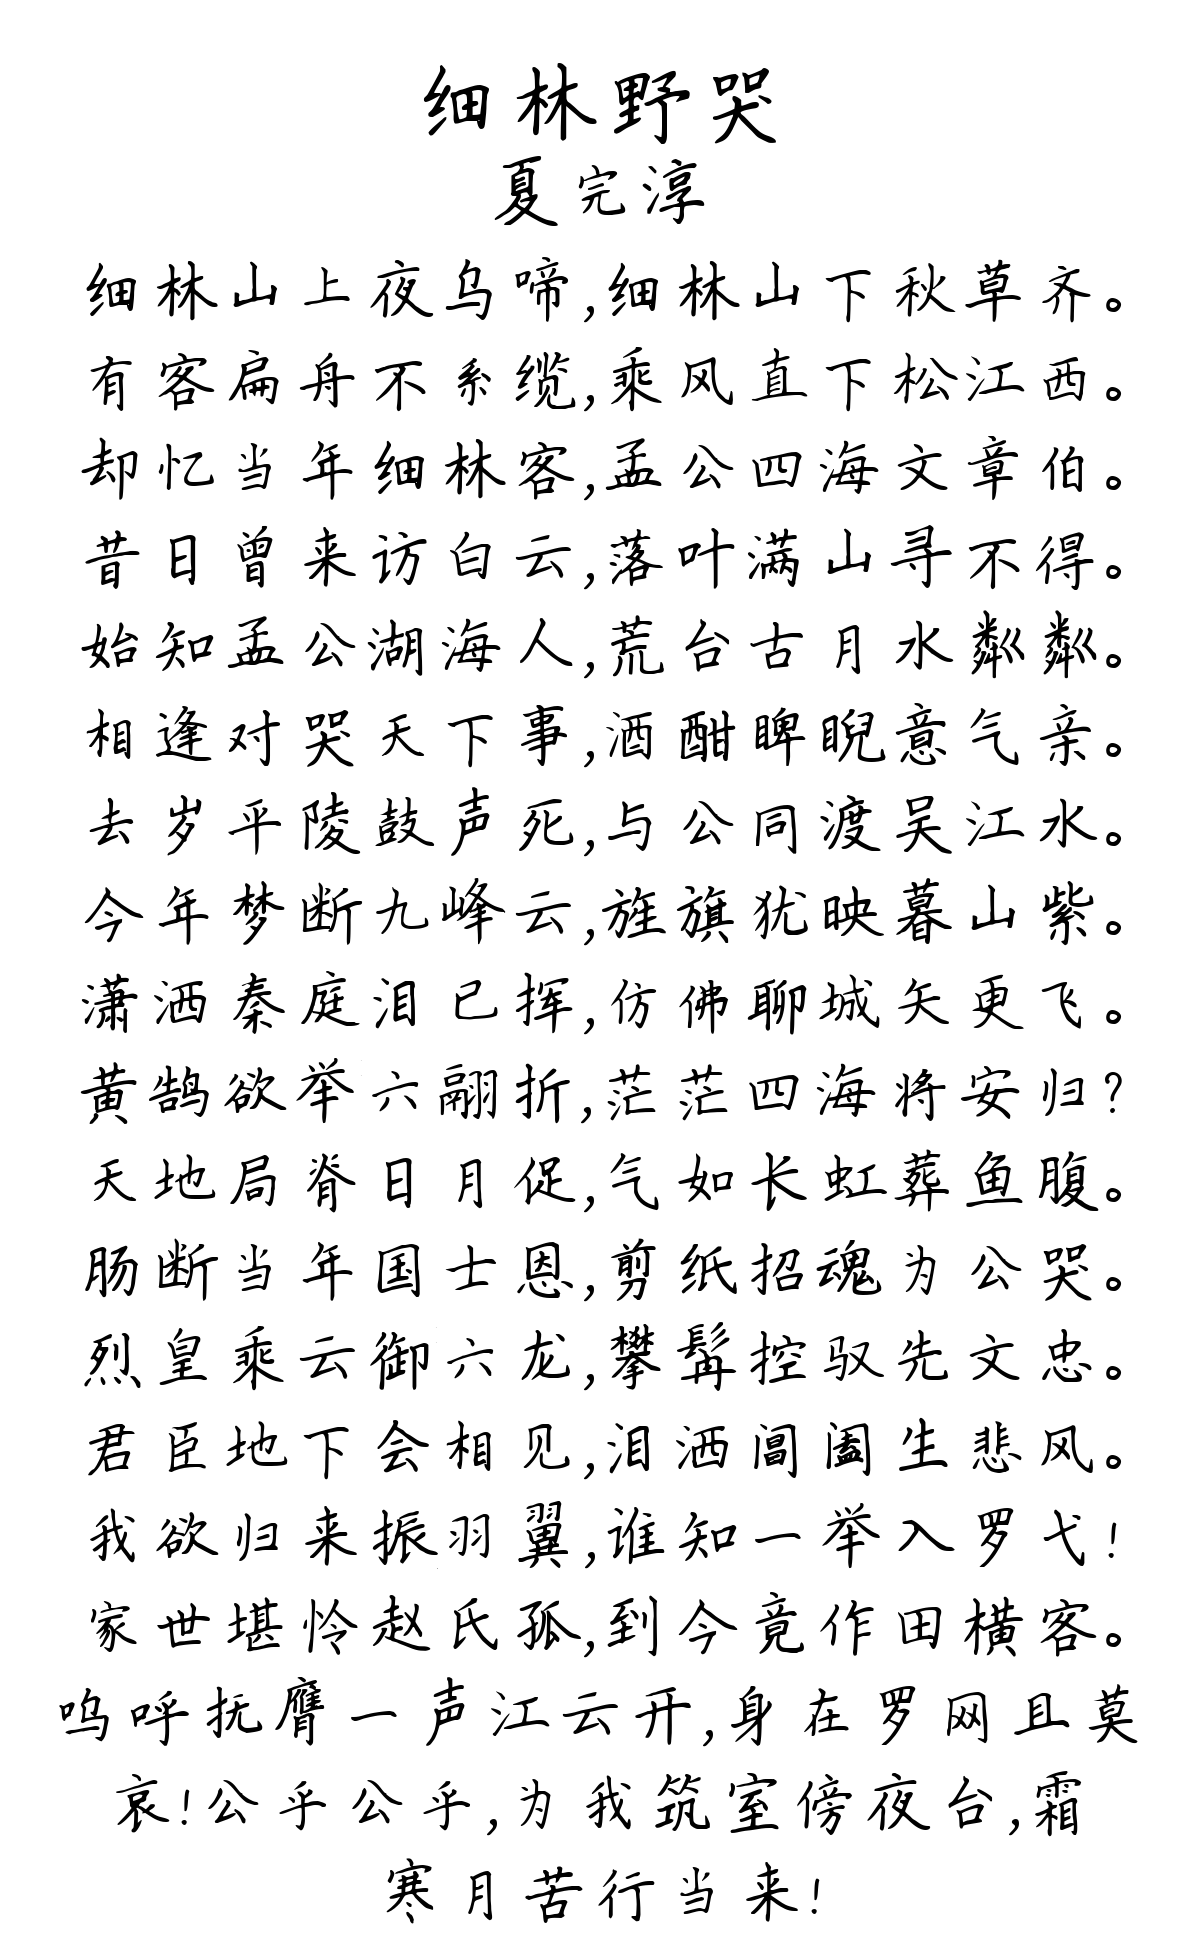 细林野哭
夏完淳
细林山上夜乌啼,细林山下秋草齐。
有客扁舟不系缆,乘风直下松江西。
却忆当年细林客,孟公四海文章伯。
昔日曾来访白云,落叶满山寻不得。
始知孟公湖海人,荒台古月水粼粼。
相逢对哭天下事,酒酣睥睨意气亲。
去岁平陵鼓声死,与公同渡吴江水。
今年梦断九峰云,旌旗犹映暮山紫。
潇洒秦庭泪已挥,仿佛聊城矢更飞。
黄鹄欲举六翮折,茫茫四海将安归?
天地局脊日月促,气如长虹葬鱼腹。
肠断当年国士恩,剪纸招魂为公哭。
烈皇乘云御六龙,攀髯控驭先文忠。
君臣地下会相见,泪洒阊阖生悲风。
我欲归来振羽翼,谁知一举入罗弋!
家世堪怜赵氏孤,到今竟作田横客。
呜呼抚膺一声江云开,身在罗网且莫
哀!公乎公乎,为我筑室傍夜台,霜
寒月苦行当来!